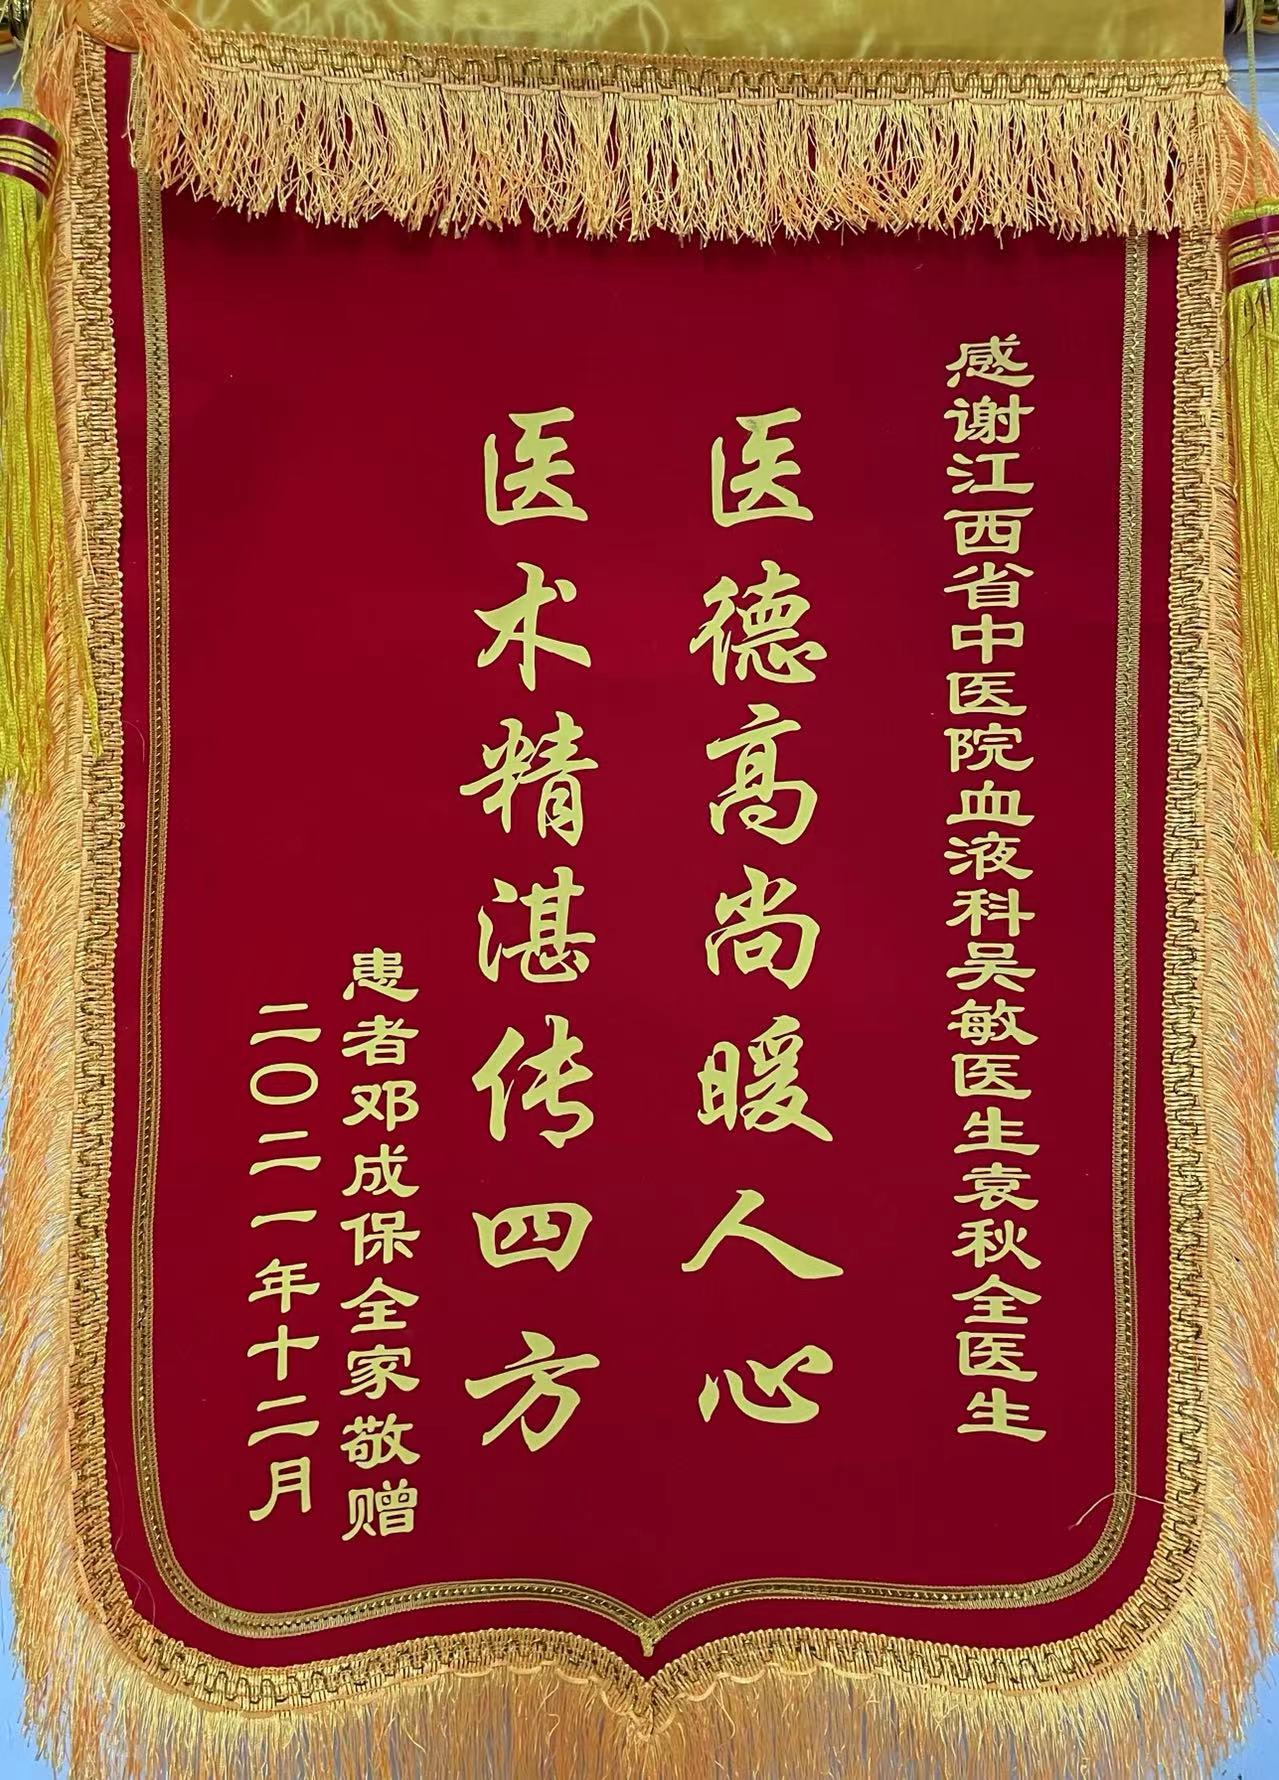 感谢江西省中医院血液科吴敏医生袁秋全医生
医德高尚暖人心
医术精湛传四方
患者邓成保全家敬赠
二〇二一年十二月